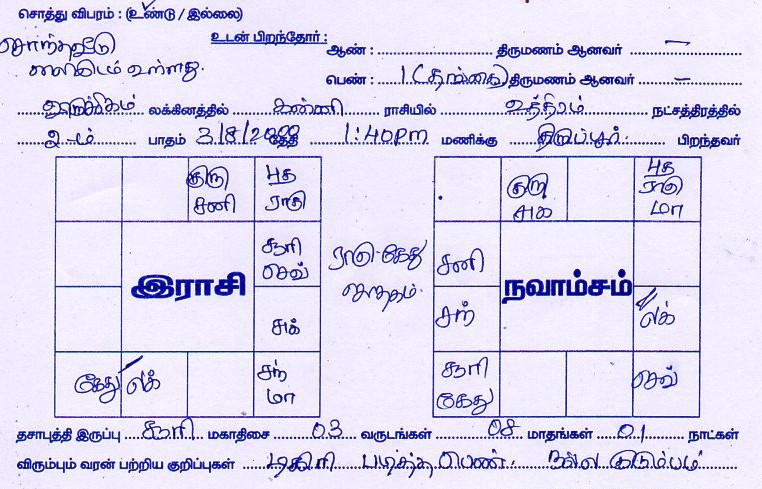 சொத்து விபரம் : (உண்டு / இல்லை)
சொந்தவீடு
காலியிடம் உள்ளது.
உடன் பிறந்தோர் :
ஆண் : ............ திருமணம் ஆனவர் —
பெண் : 1 (தங்கை) திருமணம் ஆனவர் —
விருச்சிகம் லக்கினத்தில் கன்னி ராசியில் உத்திரம் நட்சத்திரத்தில்
2-ம் பாதம் 3/8/2000 தேதி 1:40pm மணிக்கு திருப்பூர் பிறந்தவர்
குரு சனி
புத ராகு
சூரி செவ்
சுக்
சந் மா
கேது
லக்
இராசி
ராகு கேது
ஜாதகம்
குரு சுக
புத ராகு மா
சனி
சந்
சூரி கேது
லக்
செவ்
நவாம்சம்
தசாபுத்தி இருப்பு சூரி மகாதிசை 03 வருடங்கள் 08 மாதங்கள் 01 நாட்கள்
விரும்பும் வரன் பற்றிய குறிப்புகள் டிகிரி படித்த பெண். நல்ல குடும்பம்